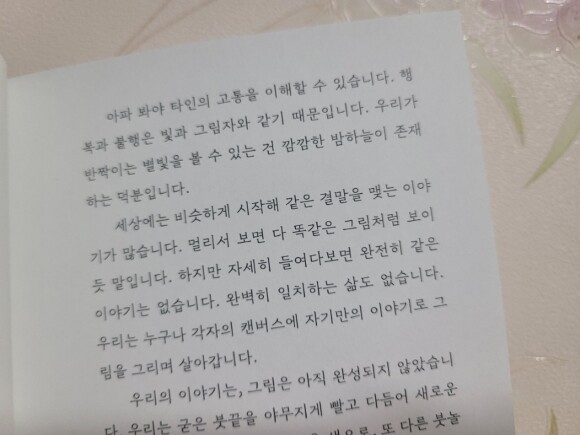 아파 봐야 타인의 고통을 이해할 수 있습니다. 행
복과 불행은 빛과 그림자와 같기 때문입니다. 우리가
반짝이는 별빛을 볼 수 있는 건 깜깜한 밤하늘이 존재
하는 덕분입니다.
세상에는 비슷하게 시작해 같은 결말을 맺는 이야
기가 많습니다. 멀리서 보면 다 똑같은 그림처럼 보이
듯 말입니다. 하지만 자세히 들여다보면 완전히 같은
이야기는 없습니다. 완벽히 일치하는 삶도 없습니다.
우리는 누구나 각자의 캔버스에 자기만의 이야기로 그
림을 그리며 살아갑니다.
우리의 이야기는, 그림은 아직 완성되지 않았습니
다. 우리는 굳은 붓끝을 야무지게 빨고 다듬어 새로운
색으로, 또 다른 붓놀